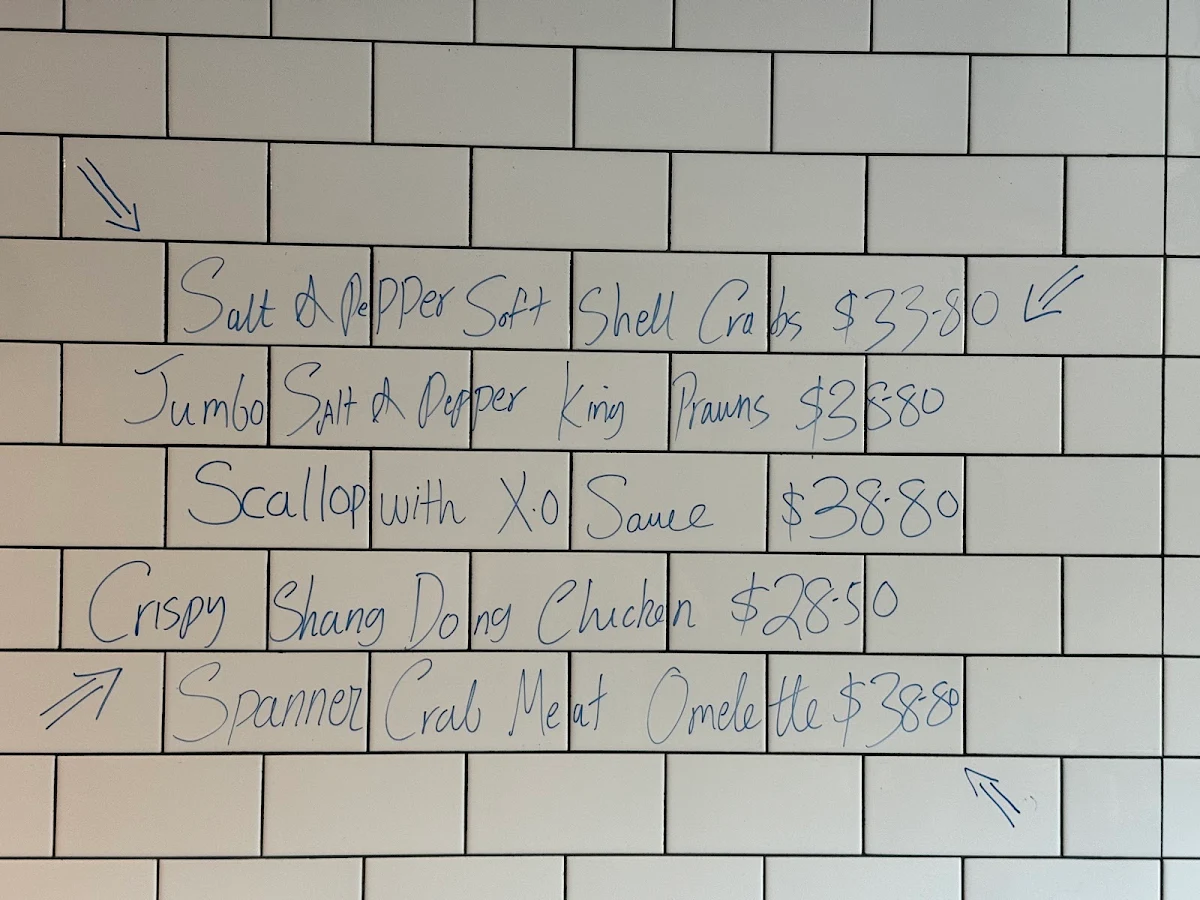 Salt & Pepper Soft Shell Crabs $33.80
Jumbo Salt & Pepper King Prawns $38.80
Scallop with X.O Sauce $38.80
Crispy Shang Dong Chicken $28.50
Spanner Crab Meat Omelette $38.80